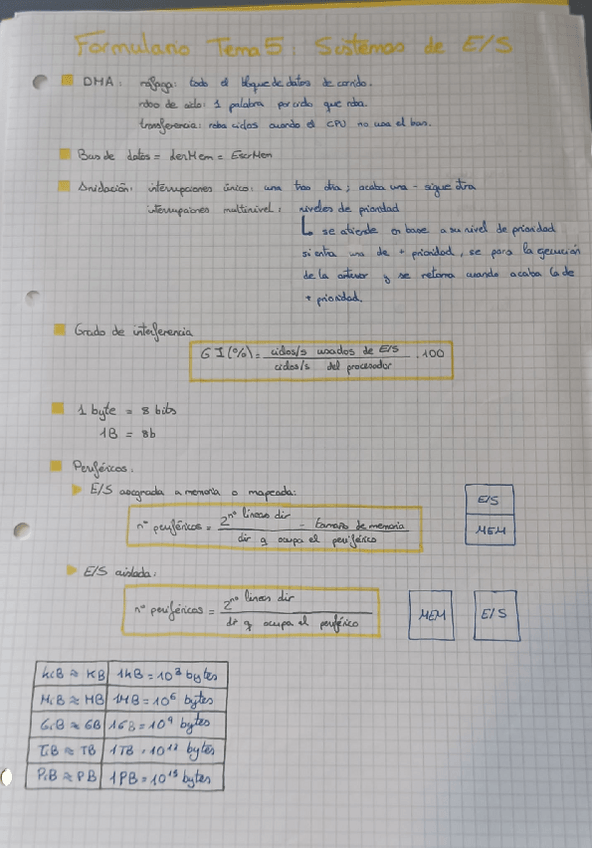 Formulario Tema 5: Sistemas de E/S
DMA: ráfaga: todo el bloque de datos de corrido.
robo de ciclo: 1 palabra por ciclo que roba.
transferencia: roba ciclos cuando el CPU no usa el bus.
Bus de datos = lecMem = EscrMem
Anidación: interrupciones único: una tras otra; acaba una - sigue otra
interrupciones multinivel: niveles de prioridad
↳ se atiende en base a su nivel de prioridad
si entra una de + prioridad, se para la ejecución
de la anterior y se retoma cuando acaba la de
+ prioridad.
Grado de interferencia
GI (%) = ciclos/s usados de E/S / ciclos/s del procesador · 100
1 byte = 8 bits
1B = 8b
Periféricos.
E/S asignada a memoria o mapeada:
nº periféricos = 2^nº lineas dir - tamaño de memoria / dir q ocupa el periférico
E/S
MEM
E/S aislada:
nº periféricos = 2^nº lineas dir / dir q ocupa el periférico
MEM E/S
KiB ≈ KB 1KB = 10^3 bytes
MiB ≈ MB 1MB = 10^6 bytes
GiB ≈ GB 1GB = 10^9 bytes
TiB ≈ TB 1TB = 10^12 bytes
PiB ≈ PB 1PB = 10^15 bytes